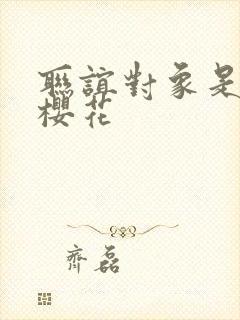 聯誼對象是
櫻花
齊磊